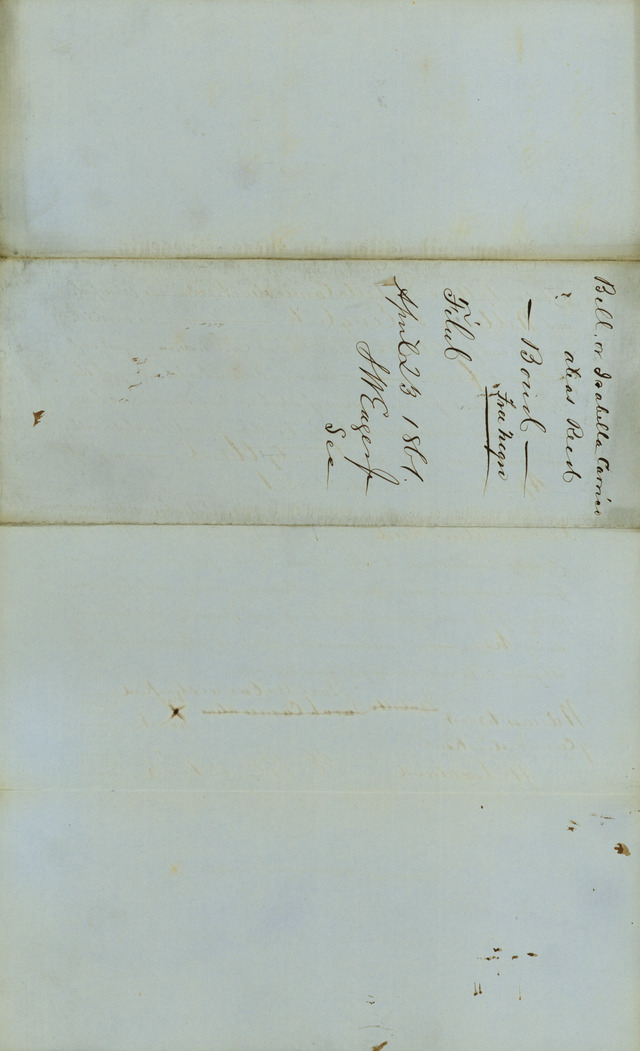 Bell, or Isabella Carrier
alias Reed
— Bond —
Free Negro
Filed
April 23 1861.
J W Eager Jr
Sec